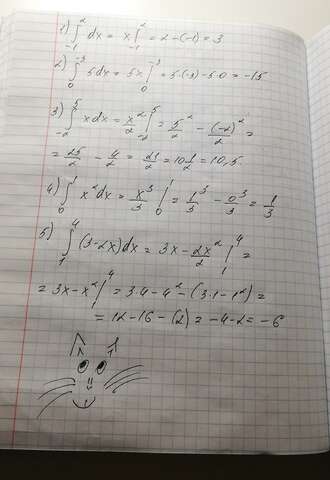 1) ∫₋₁² dx = x |₋₁² = 2 - (-1) = 3
2) ∫₀⁻³ 5dx = 5x |₀⁻³ = 5·(-3) - 5·0 = -15
3) ∫₋₂⁵ xdx = x²/2 |₋₂⁵ = 5²/2 - (-2)²/2 =
= 25/2 - 4/2 = 21/2 = 10 1/2 = 10,5
4) ∫₀¹ x²dx = x³/3 |₀¹ = 1³/3 - 0³/3 = 1/3
5) ∫₁⁴ (3-2x)dx = 3x - 2x²/2 |₁⁴ =
= 3x - x² |₁⁴ = 3·4 - 4² - (3·1 - 1²) =
= 12 - 16 - (2) = -4 - 2 = -6